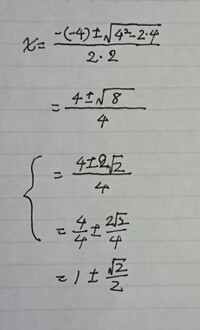 x = \frac{-(-4) \pm \sqrt{4^2 - 2 \cdot 4}}{2 \cdot 2}
= \frac{4 \pm \sqrt{8}}{4}
= \frac{4 \pm 2\sqrt{2}}{4}
= \frac{4}{4} \pm \frac{2\sqrt{2}}{4}
= 1 \pm \frac{\sqrt{2}}{2}